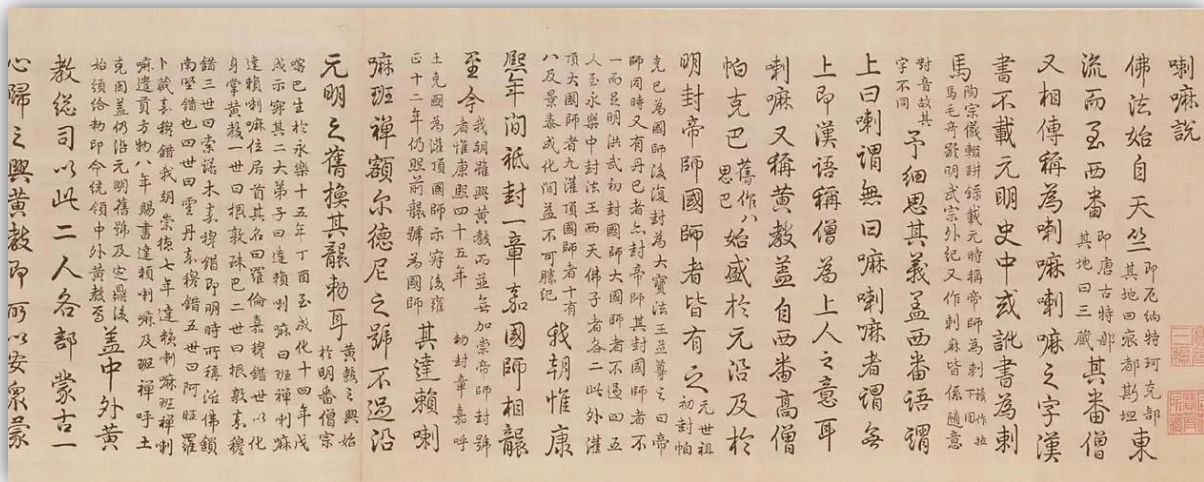 喇嘛說
佛法始自天竺即厄納特珂克部其地曰痕都斯坦東
流而至西番即唐古特部其地曰三藏其番僧
又相傳稱為喇嘛喇嘛之字漢
書不載元明史中或訛書為剌
馬陶宗儀輟耕錄載元時稱帝師為剌該作拉下同馬毛奇齡明武宗外紀又作剌麻皆係隨意
對音故其字不同予細思其義蓋西番語謂
上曰喇謂無曰嘛喇嘛者謂無
上即漢語稱僧為上人之意耳
喇嘛又稱黃教蓋自西番高僧
帕克巴舊作八思巴始盛於元沿及於
明封帝師國師者皆有之元世祖初封帕
克巴為國師後復封為大寶法王並尊之曰帝師同時又有丹巴者亦封帝師其封國師者不
一而足明洪武初封國師大國師者不過四五人至永樂中封法王西天佛子者各二此外灌
頂大國師者九灌頂國師者十有八及景泰成化間益不可勝紀我朝惟康
熙年間祗封一章嘉國師相襲
至今我朝雖興黃教而並無加崇帝師封號者惟康熙四十五年勅封章嘉呼
土克圖為灌頂國師示寂後雍正十二年仍照前襲號為國師其達賴喇
嘛班禪額尔德尼之號不過沿
元明之舊換其襲勅耳黃教之興始於明番僧宗
喀巴生於永樂十五年丁酉至成化十四年戊戌示寂其二大弟子曰達賴喇嘛曰班禪喇嘛
達賴喇嘛位居首其名曰羅倫嘉穆錯世以化身掌黃教一世曰根敦珠巴二世曰根敦嘉穆
錯三世曰索諾木嘉穆錯即明時所稱活佛鎖南堅錯也四世曰雲丹嘉穆錯五世曰阿旺羅
卜藏嘉穆錯我朝崇德七年達賴喇嘛班禪喇嘛遣貢方物八年賜書達賴喇嘛及班禪呼土
克圖蓋仍沿元明舊號及定鼎後始頒給勅印命統領中外黃教焉蓋中外黃
教總司以此二人各部蒙古一
心歸之興黃教即所以安眾蒙